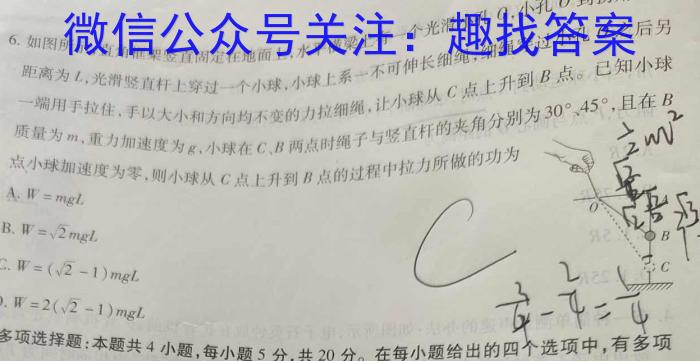 微信公众号关注：趣找答案
6. 如图所 直角框架竖直固定在地面上,水平横梁上 一个光滑小孔O,小孔O到
距离为L,光滑竖直杆上穿过一个小球,小球上系一不可伸长细绳,细绳穿过小孔 后另
一端用手拉住,手以大小和方向均不变的力拉细绳,让小球从C点上升到B点。已知小球
质量为m,重力加速度为g,小球在C、B两点时绳子与竖直杆的夹角分别为30°、45°,且在B
点小球加速度为零,则小球从C点上升到B点的过程中拉力所做的功为
A. W=mgL
B. W=√2mgL
C. W=(√2-1)mgL
D. W=2(√2-1)mgL
O
B
C
C
3/4 - 2/4 = 1/4
多项选择题:本题共4小题,每小题5分,共20分。在每小题给出的四个选项中,有多项